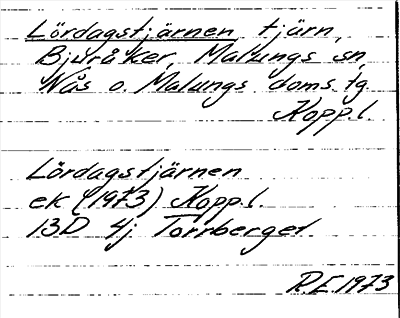 Lördagstjärnen, tjärn,
Bjuråker, Malungs sn,
Nås o. Malungs doms. tg.
Kopp.l.
Lördagstjärnen
ek (1973) Kopp.l.
13D 4j Torrberget
R.E. 1973